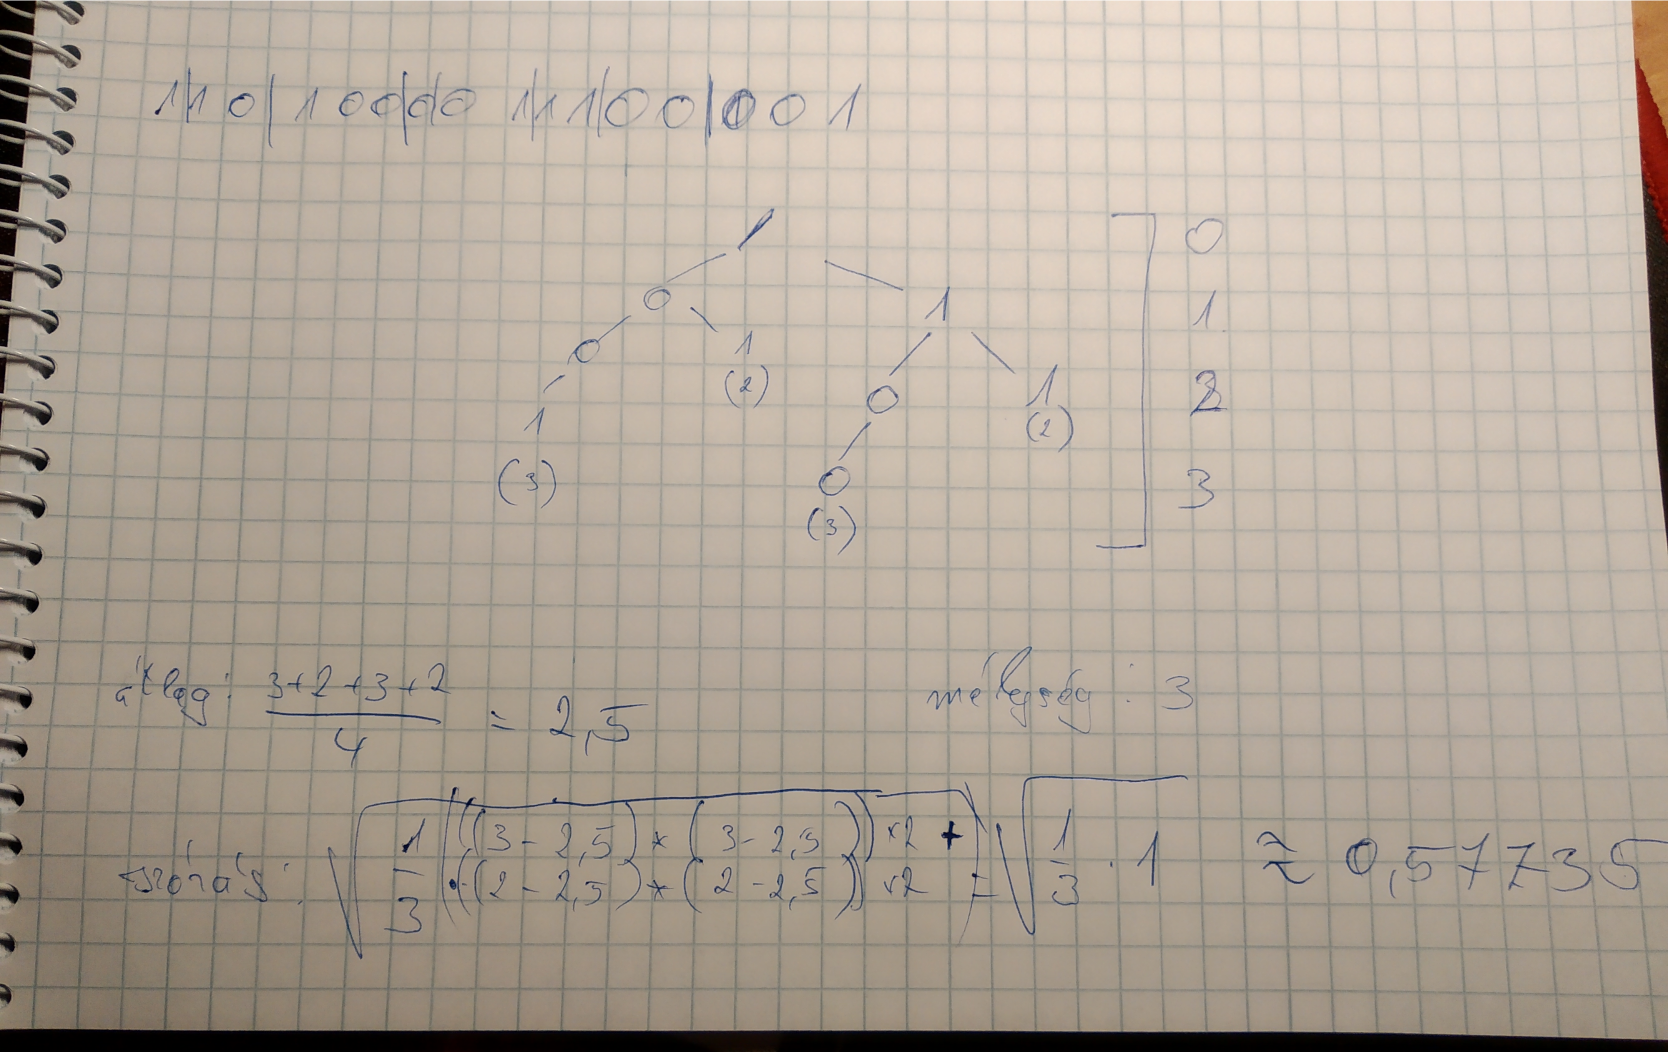 1|1 0|1 0 0|0|0 1|1 1|0 0|0 0 1
/ 0
0 1 1
0 1 0 1 2
(2) (2)
1 0 3
(3) (3)
átlag: 3+2+3+2/4 = 2,5 mélység: 3
szórás: √(1/3 (((3-2,5)*(3-2,5))*2 + ((2-2,5)*(2-2,5))*2)) = √(1/3 · 1) ≈ 0,57735